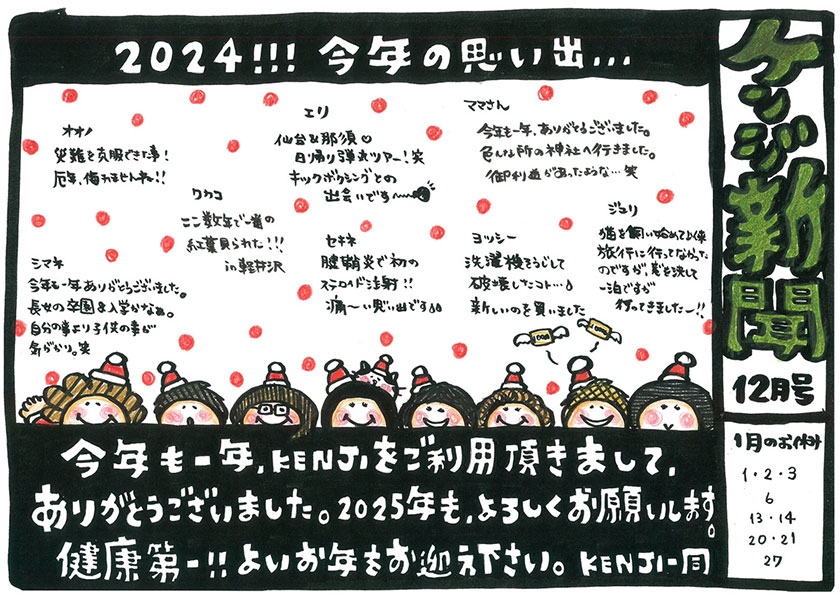 2024!!! 今年の思い出...
ケンジ新聞
12月号
オオノ
災難を克服できた事!
厄年、侮れませんね!!
エリ
仙台&那須♡
日帰り弾丸ツアー!笑
キックボクシングとの
出会いです〜
ママさん
今年も一年、ありがとうございました。
色んな所の神社へ行きました。
御利益があったような…笑
ワカコ
ここ数年で一番の
紅葉見られた!!!
in軽井沢
ジュリ
猫を飼い始めて以来
旅行に行ってなかった
のですが、意を決して
一泊ですが
行ってきましたー!!
シマネ
今年も一年ありがとうございました。
長女の卒園&入学かなぁ。
自分の事より子供の事が
気がかり。笑
セキネ
腱鞘炎で初の
ステロイド注射!!
痛〜い思い出です
ヨッシー
洗濯機をうじして
破壊したコト…
新しいのを買いました
今年も一年、KENJIをご利用頂きまして、
ありがとうございました。2025年も、よろしくお願いします。
健康第一!!よいお年をお迎え下さい。KENJI一同
1月のお休み
1・2・3
6
13・14
20・21
27